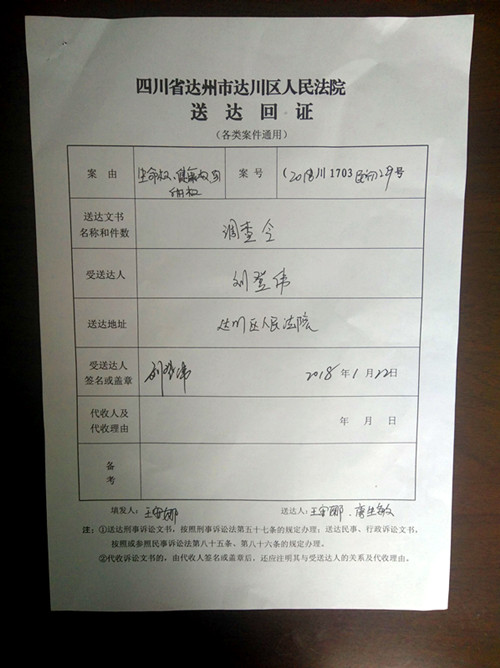 四川省达州市达川区人民法院
送 达 回 证
（各类案件通用）
案 由 生命权、健康权、身体权 案 号 （2018）川1703民初29号
送达文书名称和件数 调查令
受送达人 刘登伟
送达地址 达川区人民法院
受送达人签名或盖章 刘登伟 2018年1月22日
代收人及代收理由 年 月 日
备考
填发人： 送达人：
注：①送达刑事诉讼文书，按照刑事诉讼法第五十七条的规定办理；送达民事、行政诉讼文书，
按照或参照民事诉讼法第八十五条、第八十六条的规定办理。
②代收诉讼文书的，由代收人签名或盖章后，还应注明其与受送达人的关系及代收理由。